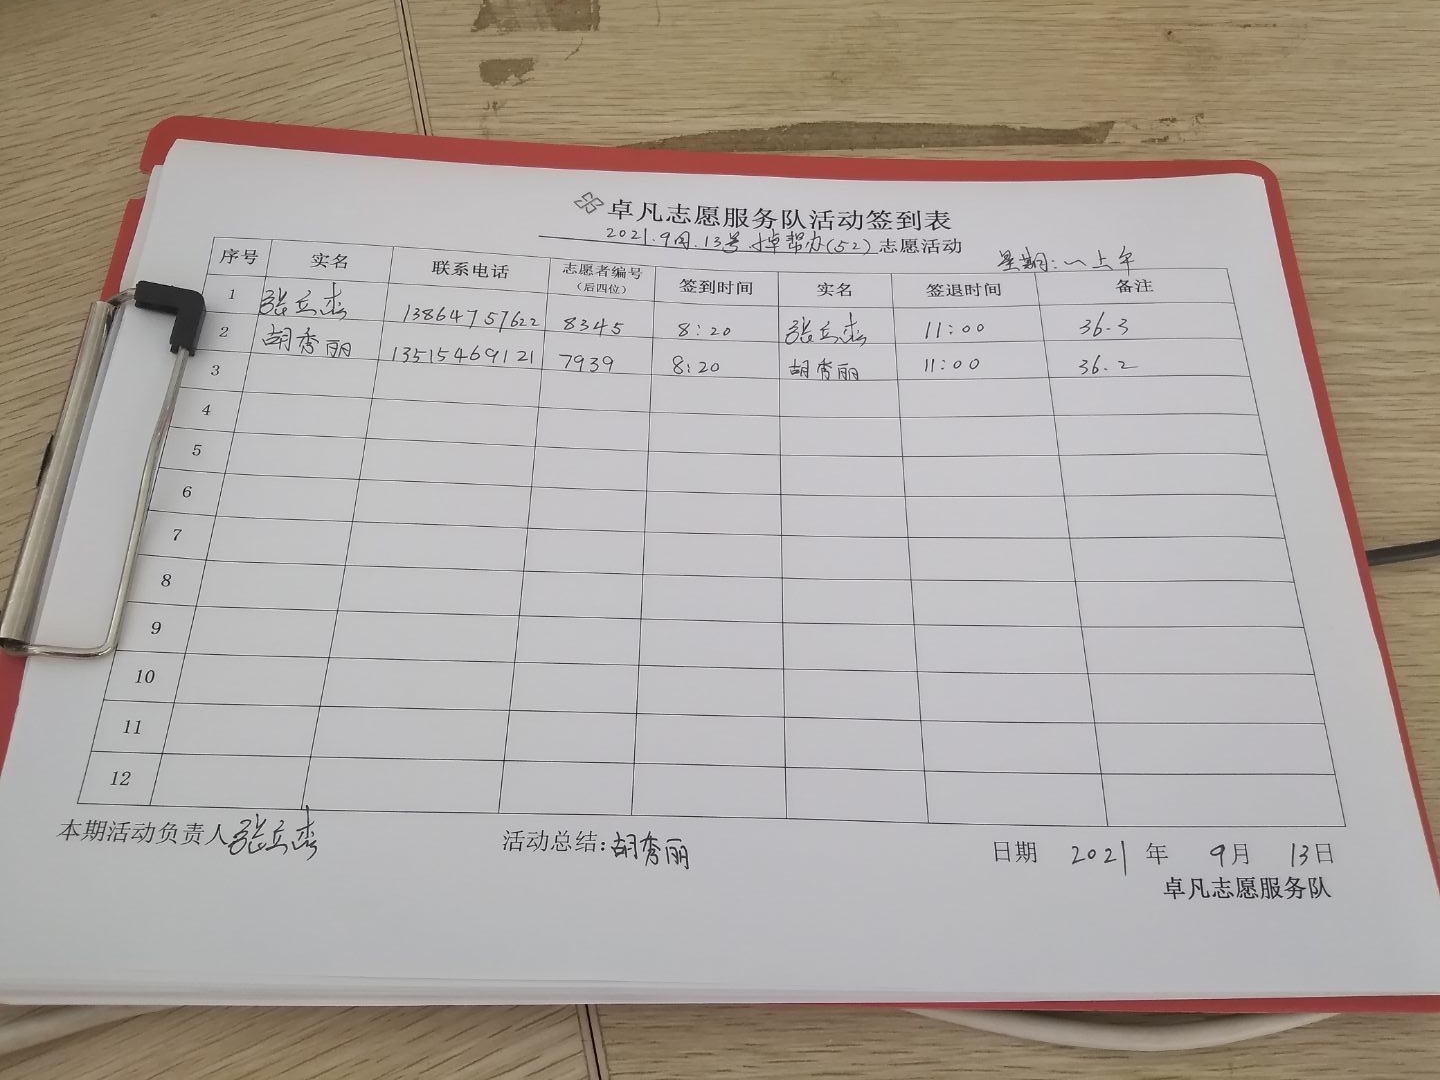 卓凡志愿服务队活动签到表
2021.9月.13号.掉帮办(52)志愿活动
星期:一上午
序号 实名 联系电话 志愿者编号(后四位) 签到时间 实名 签退时间 备注
1 张立杰 13864757622 8345 8:20 张立杰 11:00 36.3
2 胡秀丽 13515469121 7939 8:20 胡秀丽 11:00 36.2
3
4
5
6
7
8
9
10
11
12
本期活动负责人 张立杰 活动总结:胡秀丽 日期 2021 年 9月 13日
卓凡志愿服务队